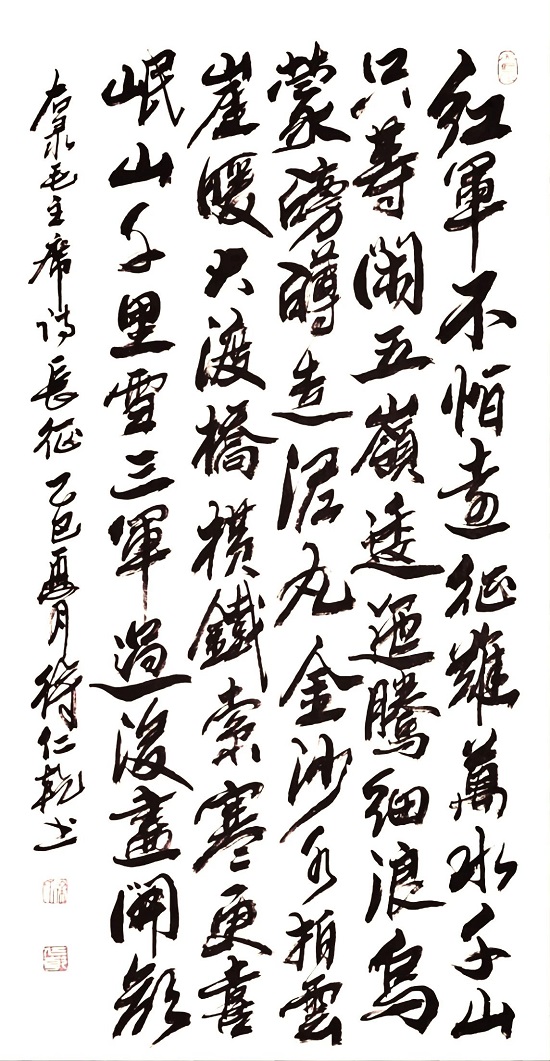 紅軍不怕遠征難萬水千山
只等閑五嶺逶迤騰細浪烏
蒙磅礴走泥丸金沙水拍雲
崖暖大渡橋橫鐵索寒更喜
岷山千里雪三軍過後盡開顏
右录毛主席诗長征乙巳月仁乾书